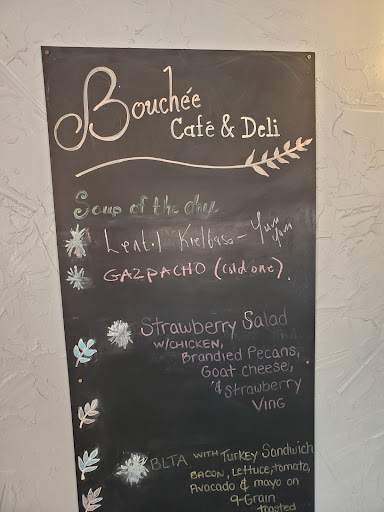 Bouchée
Café & Deli
Soup of the day
Lentil Kielbasa - Yum
Yum
GAZPACHO (cold one).
Strawberry Salad
W/CHICKEN,
Brandied Pecans,
Goat cheese,
& Strawberry
Ving
BLTA WITH Turkey Sandwich
BACON, Lettuce, tomato,
Avocado & mayo on
9-Grain
toasted